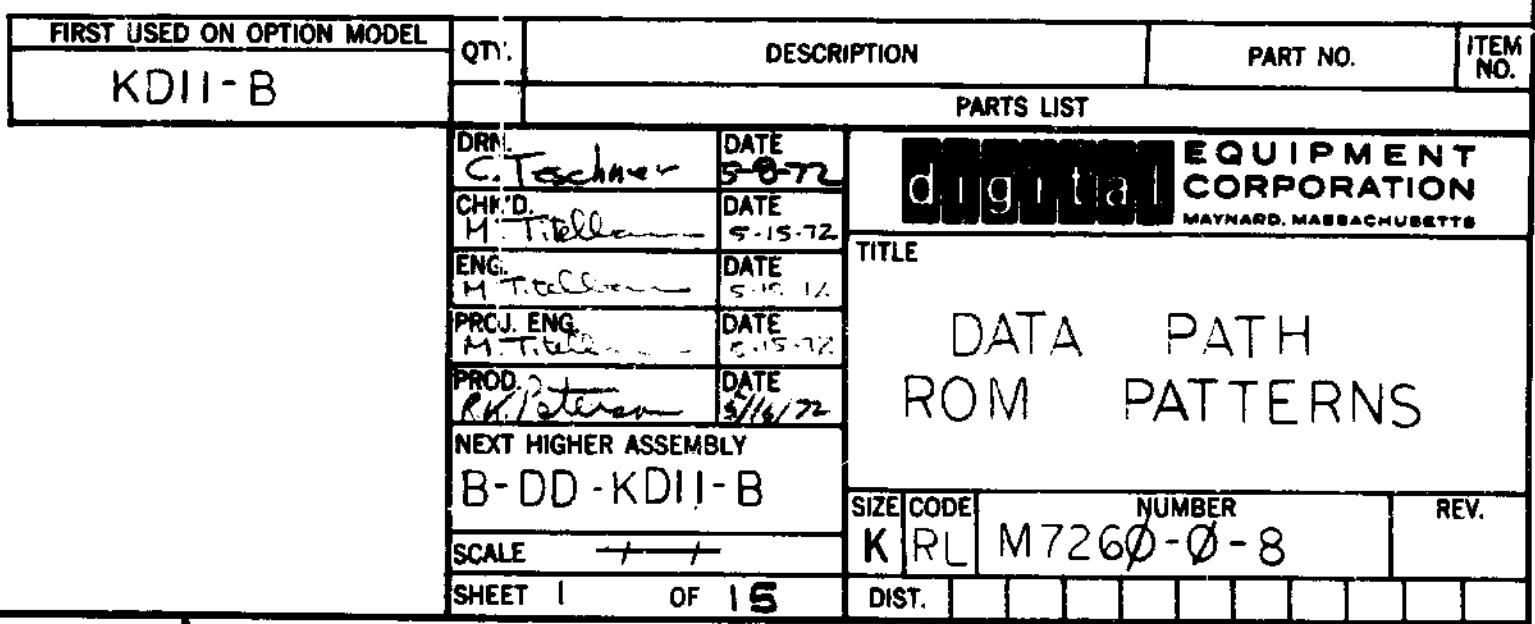 FIRST USED ON OPTION MODEL
KD11-B
QTY. DESCRIPTION PART NO. ITEM NO.
PARTS LIST
DRN. C. Teschner DATE 5-8-72
CHK'D. M. DATE 5-15-72
ENG. M DATE
PROJ. ENG. M. DATE 5-15-72
PROD. R.K. Peterson DATE 5/16/72
NEXT HIGHER ASSEMBLY
B-DD-KD11-B
SCALE
SHEET 1 OF 15
digital EQUIPMENT CORPORATION
MAYNARD, MASSACHUSETTS
TITLE
DATA PATH
ROM PATTERNS
SIZE CODE NUMBER REV.
K RL M726Ø-Ø-8
DIST.